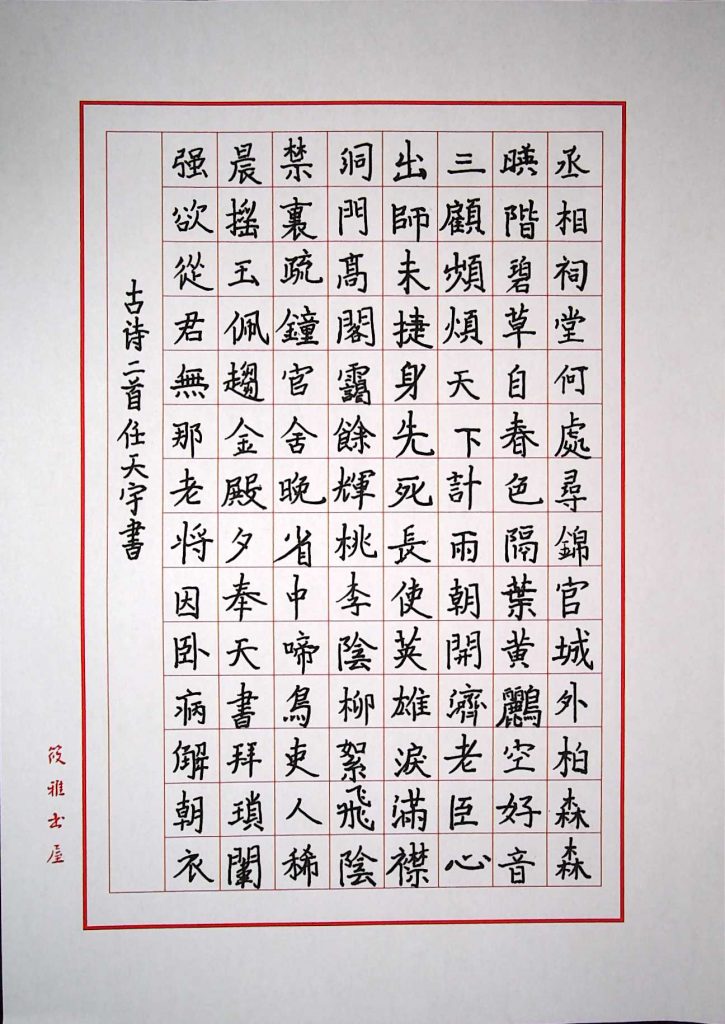 丞相祠堂何處尋錦官城外柏森森
暎階碧草自春色隔葉黄鸝空好音
三顧頻煩天下計雨朝開濟老臣心
出師未捷身先死長使英雄淚滿襟
洞門髙閣靄餘輝桃李陰柳絮飛陰
禁裏疏鐘官舍晚省中啼鳥吏人稀
晨摇玉佩趨金殿夕奉天書拜瑣闈
强欲從君無那老將因卧病解朝衣
古诗二首任天宇書
筱雅书屋